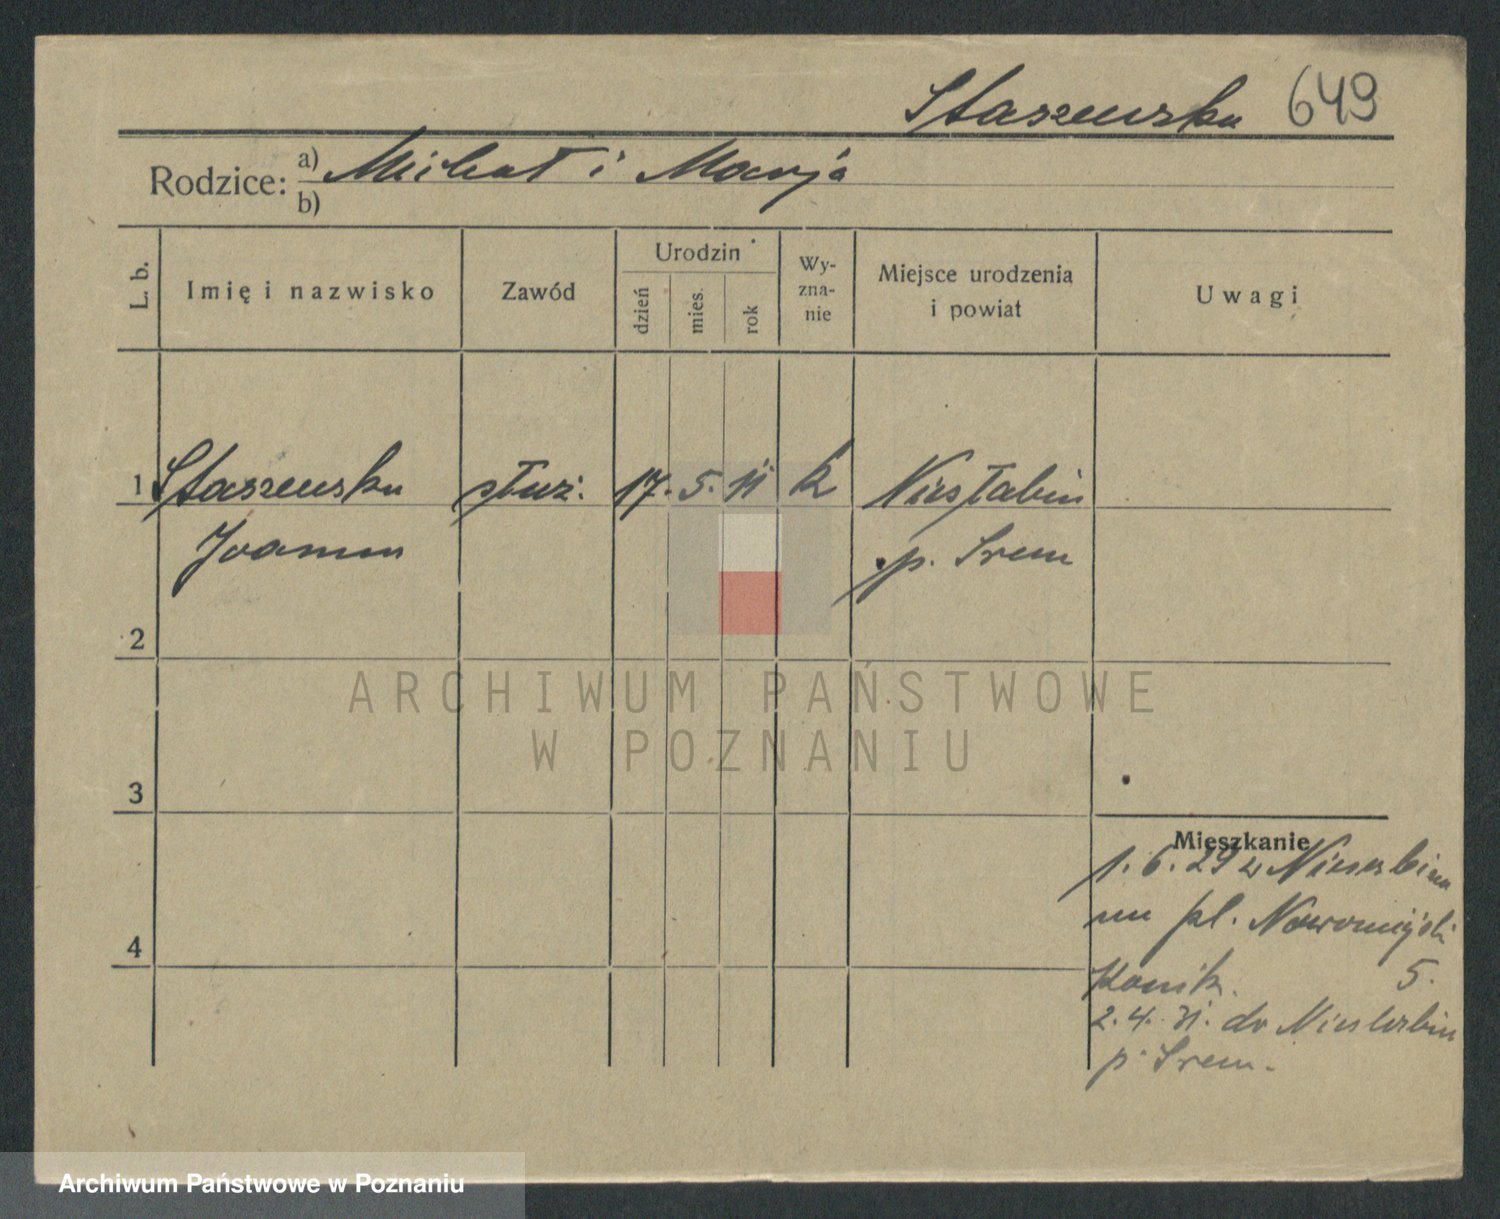 Staszewska 649
Rodzice: a) Michał i Marja
b)
L. b. Imię i nazwisko Zawód Urodzin dzień mies. rok Wy-zna-nie Miejsce urodzenia i powiat Uwagi
1 Staszewska służ. 17. 5. 11 k Niesłabin
Joanna p. Śrem
2
ARCHIWUM PAŃSTWOWE
W POZNANIU
3
Mieszkanie
1. 6. 29 z
na pl. Nowomiejski
5.
4
2. 4. 31. do
p. Śrem.
Archiwum Państwowe w Poznaniu